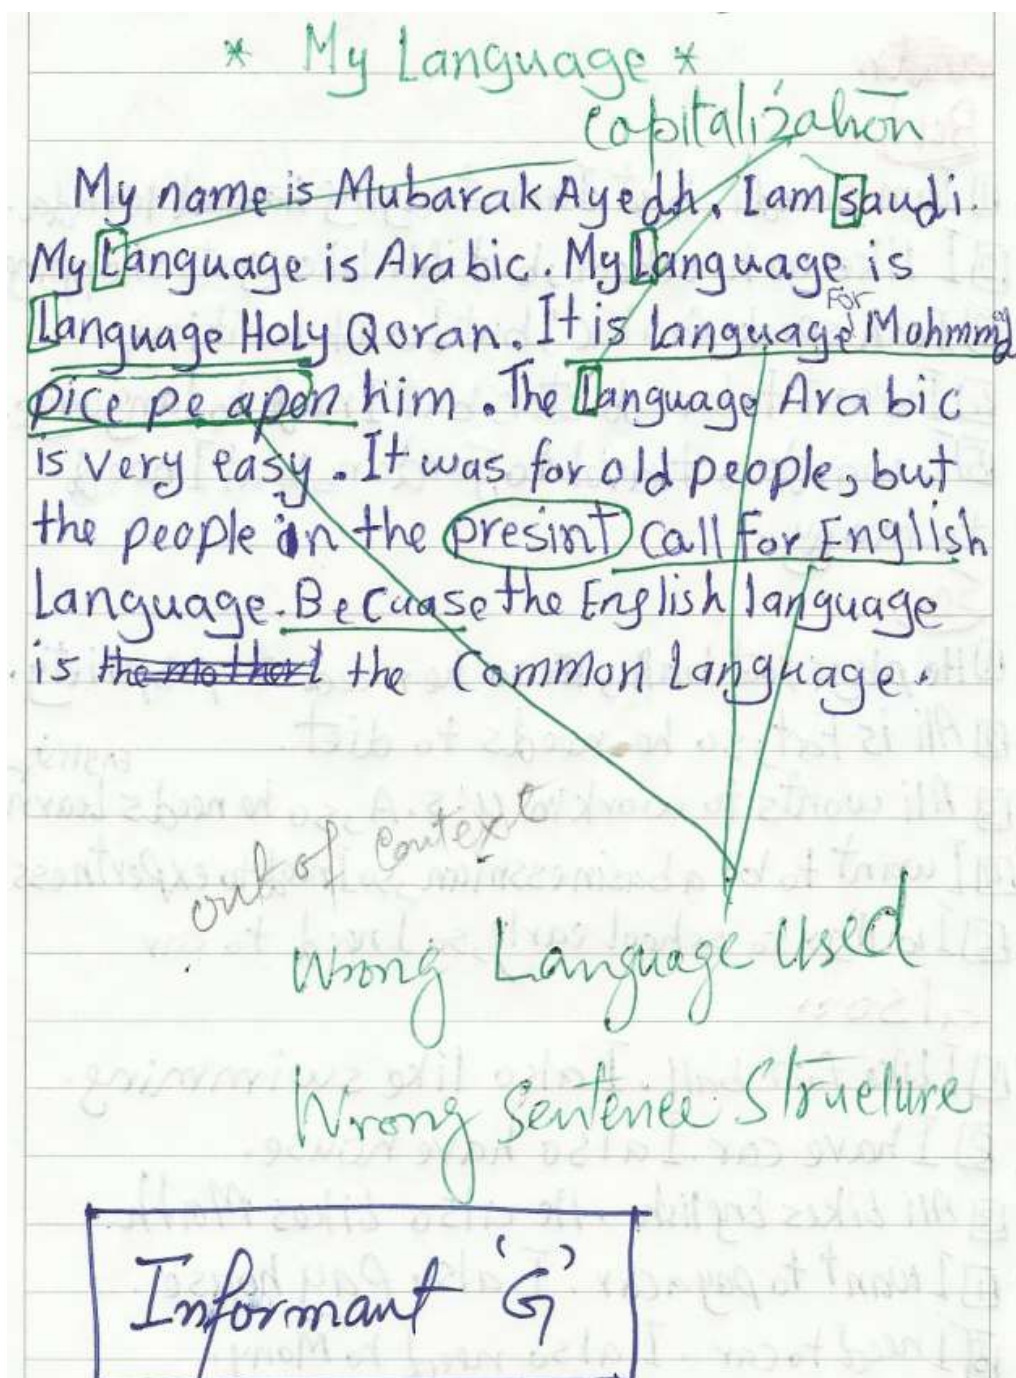 * My Language *
Capitalization
My name is Mubarak Ayedh. I am saudi.
My Language is Arabic. My Language is
Language Holy Qoran. It is language For Mohmmd
pice pe apon him. The Language Arabic
is very easy. It was for old people, but
the people in the presint call For English
Language. Becuase the English language
is the mother the Common Language.
out of context
Wrong Language Used
Wrong Sentence Structure
Informant 'G'